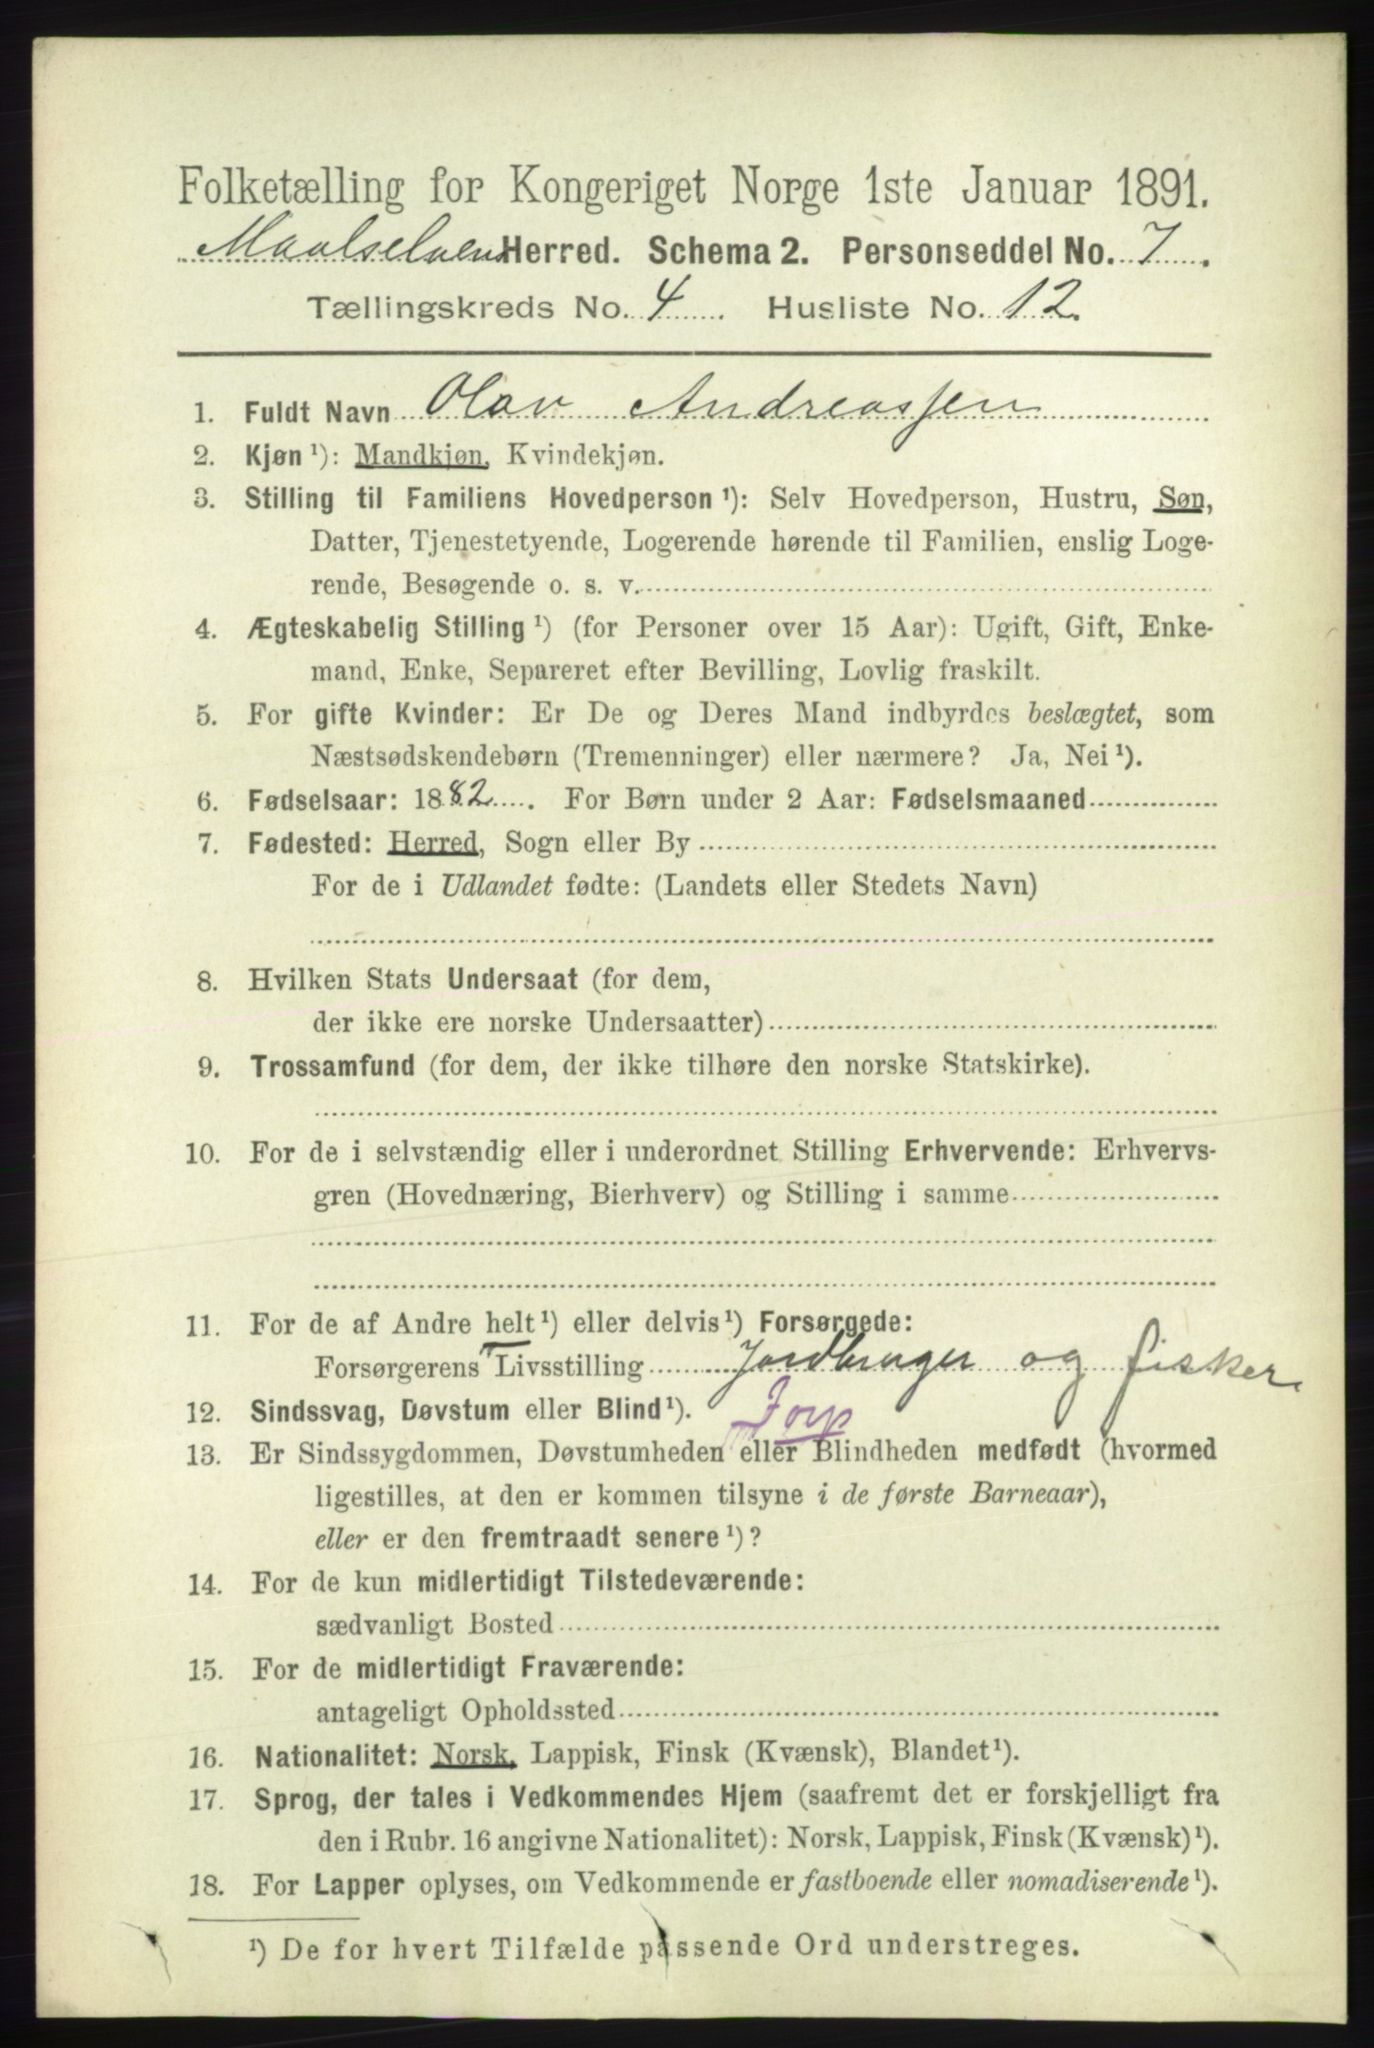 Folketælling for Kongeriget Norge 1ste Januar 1891.
Maalselven Herred. Schema 2. Personseddel No. 7.
Tællingskreds No. 4. Husliste No. 12.
1. Fuldt Navn Olav Andreassen
2. Kjøn ¹): Mandkjøn, Kvindekjøn.
3. Stilling til Familiens Hovedperson ¹): Selv Hovedperson, Hustru, Søn,
Datter, Tjenestetyende, Logerende hørende til Familien, enslig Loge-
rende, Besøgende o. s. v.
4. Ægteskabelig Stilling ¹) (for Personer over 15 Aar): Ugift, Gift, Enke-
mand, Enke, Separeret efter Bevilling, Lovlig fraskilt.
5. For gifte Kvinder: Er De og Deres Mand indbyrdes beslægtet, som
Næstsødskendebørn (Tremenninger) eller nærmere? Ja, Nei ¹).
6. Fødselsaar: 1882. For Børn under 2 Aar: Fødselsmaaned
7. Fødested: Herred, Sogn eller By
For de i Udlandet fødte: (Landets eller Stedets Navn)
8. Hvilken Stats Undersaat (for dem,
der ikke ere norske Undersaatter)
9. Trossamfund (for dem, der ikke tilhøre den norske Statskirke).
10. For de i selvstændig eller i underordnet Stilling Erhvervende: Erhvervs-
gren (Hovednæring, Bierhverv) og Stilling i samme
11. For de af Andre helt ¹) eller delvis ¹) Forsørgede:
Forsørgerens Livsstilling Jordbruger og fisker
12. Sindssvag, Døvstum eller Blind ¹).
13. Er Sindssygdommen, Døvstumheden eller Blindheden medfødt (hvormed
ligestilles, at den er kommen tilsyne i de første Barneaar),
eller er den fremtraadt senere ¹)?
14. For de kun midlertidigt Tilstedeværende:
sædvanligt Bosted
15. For de midlertidigt Fraværende:
antageligt Opholdssted
16. Nationalitet: Norsk, Lappisk, Finsk (Kvænsk), Blandet ¹).
17. Sprog, der tales i Vedkommendes Hjem (saafremt det er forskjelligt fra
den i Rubr. 16 angivne Nationalitet): Norsk, Lappisk, Finsk (Kvænsk) ¹).
18. For Lapper oplyses, om Vedkommende er fastboende eller nomadiserende ¹).
¹) De for hvert Tilfælde passende Ord understreges.